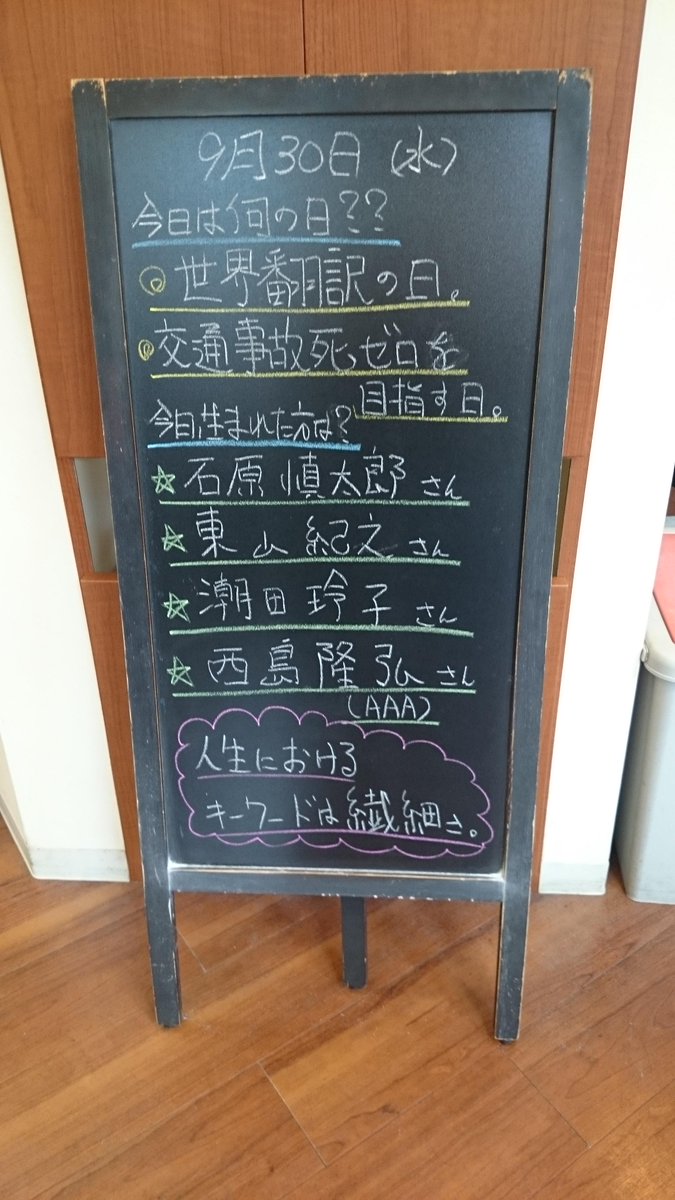 9月30日(水)
今日は何の日??
世界翻訳の日。
交通事故死ゼロを
目指す日。
今日生まれた方は?
☆石原慎太郎さん
☆東山紀之さん
☆潮田玲子さん
☆西島隆弘さん
(AAA)
人生における
キーワードは繊細さ。